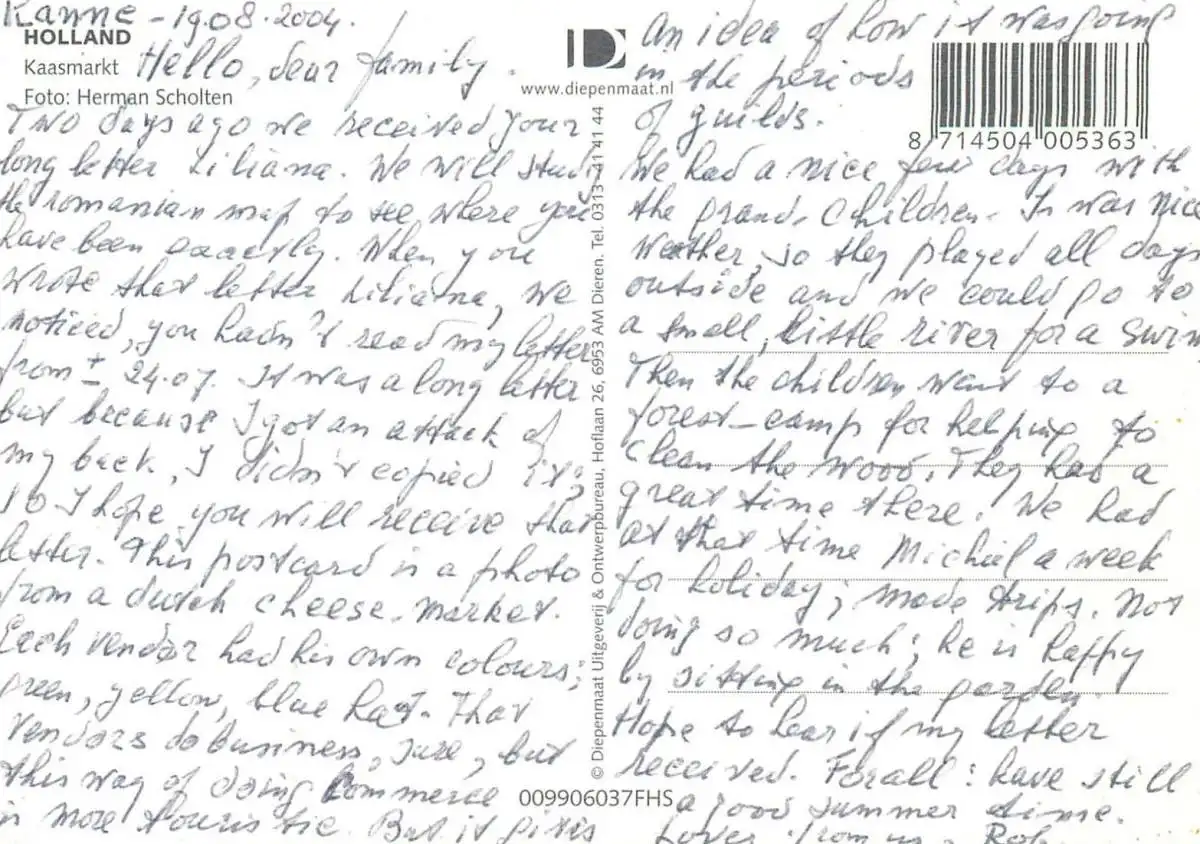 Kanne - 19.08.2004.
HOLLAND
Kaasmarkt
Foto: Herman Scholten
Hello, dear family.
Two days ago we received your
long letter Liliana. We will study
the romanian map to see, where you
have been exactly. When you
wrote that letter Liliana, we
noticed, you hadn't read my letter
from ± 24.07. It was a long letter
but because I got an attack of
my back, I didn't copied it;
so I hope you will receive that
letter. This postcard is a photo
from a dutch cheese-market.
Each vendor had his own colours;
green, yellow, blue hat. That
vendors do business, sure, but
this way of doing commerce
is more touristic. But it gives
www.diepenmaat.nl
© Diepenmaat Uitgeverij & Ontwerpbureau, Hoflaan 26, 6953 AM Dieren. Tel. 0313 41 41 44
009906037FHS
An idea of how it was going
in the periods
of guilds.
8 714504 005363
We had a nice few days with
the grand-children. It was nice
weather, so they played all days
outside and we could go to
a small, little river for a swim
Then the children went to a
forest-camp for helping to
clean the wood. They had a
great time there. We had
at that time Michiel a week
for holiday; made trips. Not
doing so much; he is happy
by sitting in the garden.
Hope to hear if my letter
received. For all: have still
a good summer time.
Love, from us, Rob